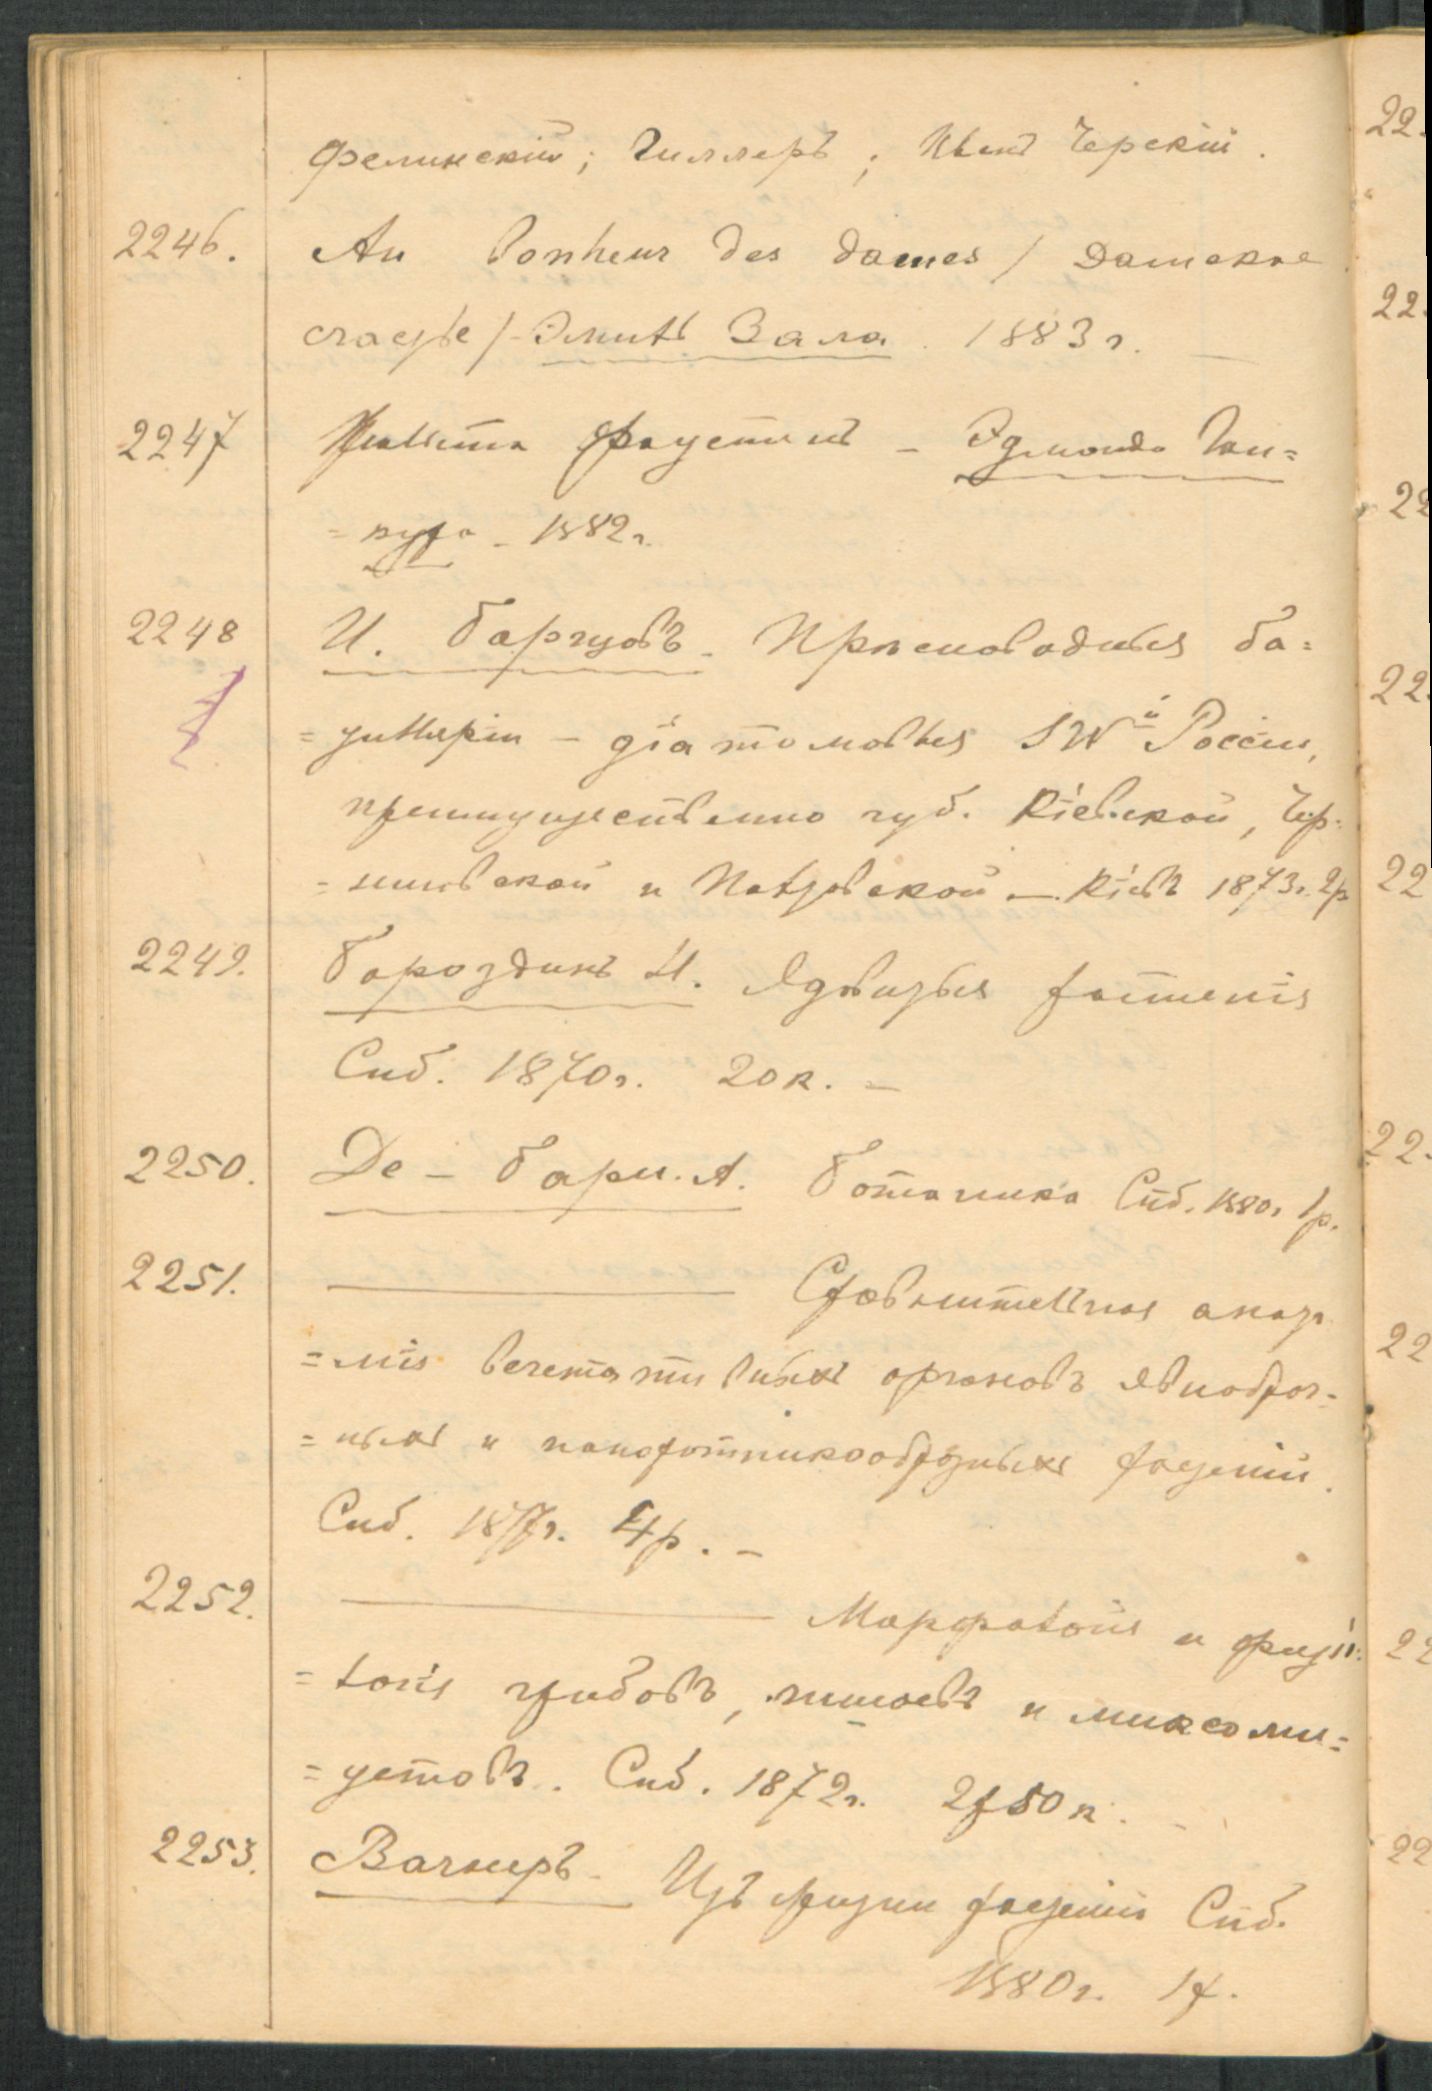 Фелинскій; Гиллеръ; Иванъ Черскій.
2246. Au bonheur des dames / Дамское
счастье / - Эмиль Зола. 1883 г. —
2247 Фаустинъ - Эдмонда Гон=
=кура - 1882 г.
2248 И. Борщовъ. Прѣсноводныя ба=
=циллярiи - дiатомовыя SWй Россiи,
преимущественно губ. Кiевской, Чер=
=ниговской и Полтавской. — Кiевъ 1873 г. 2р
2249. Бороздинъ И. Ядовитыя растенiя
Спб. 1870 г. 20 к. —
2250. Де-Бари. А. Ботаника Спб. 1880 г. 1 р.
2251. ——— Сравнительная анато
=мiя вегетативныхъ органовъ явнобрач=
=ныхъ и папоротникообразныхъ растенiй.
Спб. 1877 г. 4 р. —
2252. ——— Морфологiя и физiо=
=логiя грибовъ, лишаевъ и миксоми=
=цетовъ. Спб. 1872 г. 2 р 50 к. -
2253. Вагнеръ - Изъ жизни растенiй Спб.
1880 г. 1 р.